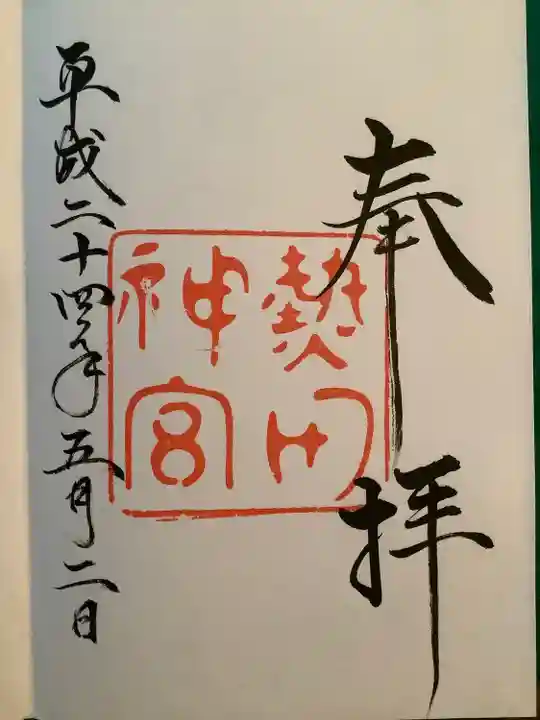 奉拝
熱田
神宮
平成二十四年五月二日